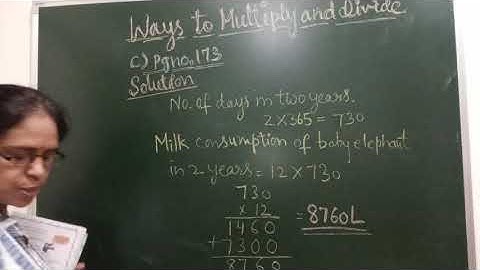 Ways to Multiply and Divide
c) pgno. 173
Solution
No. of days in two years.
2 X 365 = 730
Milk consumption of baby elephant
in 2 years = 12 X 730
730
x 12
1460
+ 7300
8760
= 8760L